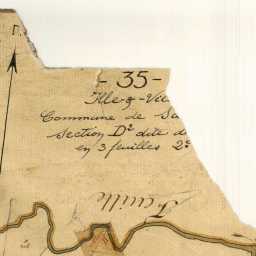 - 35 -
Ille-&-Vil
Commune de Sa
Section D² dite d
en 3 feuilles 2ᵉ
Feuille